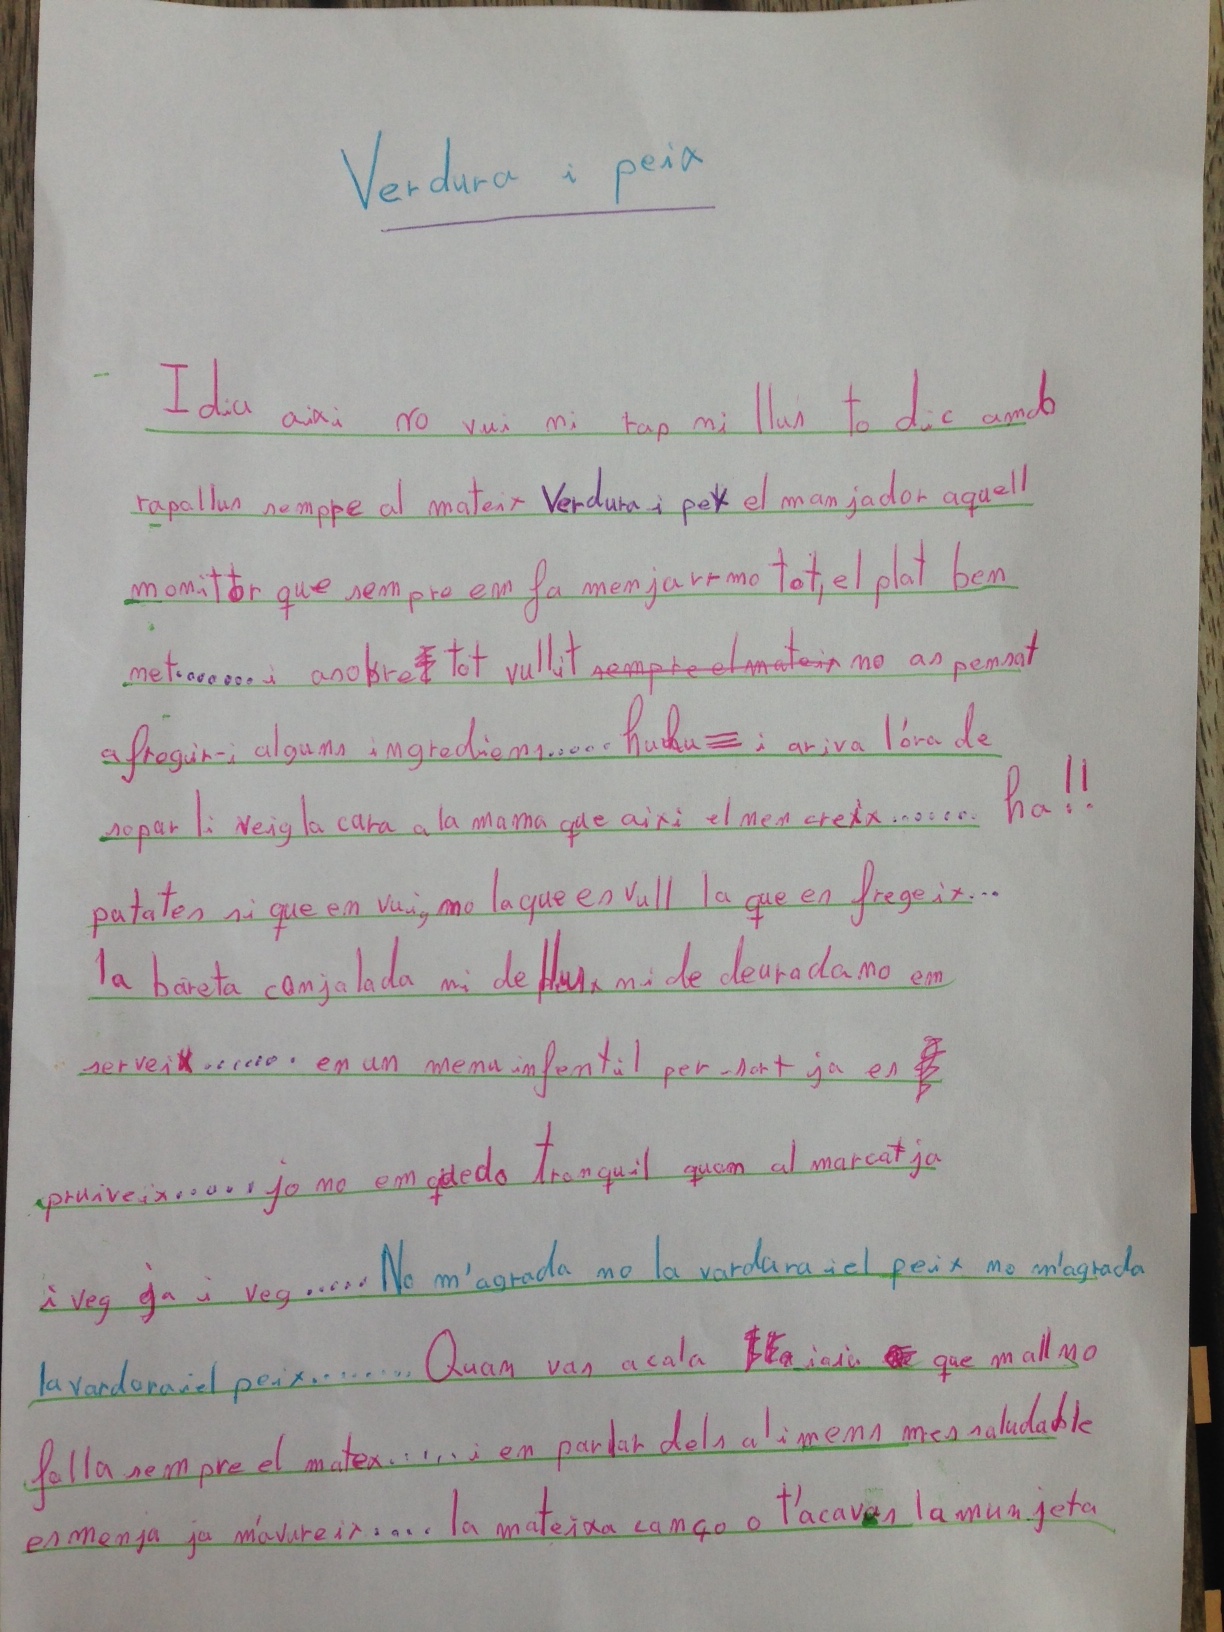 Verdura i peix
I diu aixi no vui ni rap ni llus to dic amb
rapallus semppe al mateix Verdura i pex el manjador aquell
monitor que sempre em fa menjarrmo tot, el plat ben
net........i asobre tot vullit sempre el mateix no as pensat
afregir-i alguns ingrediens..... huhu i ariva l'óra de
sopar li veig la cara a la mama que aixi el nen creix....... ha!!
patates si que en vui, no la que es vull la que es fregeix...
la bareta conjalada ni de llus ni de deurada no em
serveix....... en un menu infentil per sort ja es
pruiveix...... jo no em quedo tranquil quan al marcat ja
i veg ja i veg..... No m'agrada no la vardura iel peix no m'agrada
la vardora iel peix......... Quan vas acala iaia que mall no
falla sempre el matex...... i en parlar dels alimens mes saludable
es menja ja m'avureix..... la mateixa canço o t'acavas la munjeta